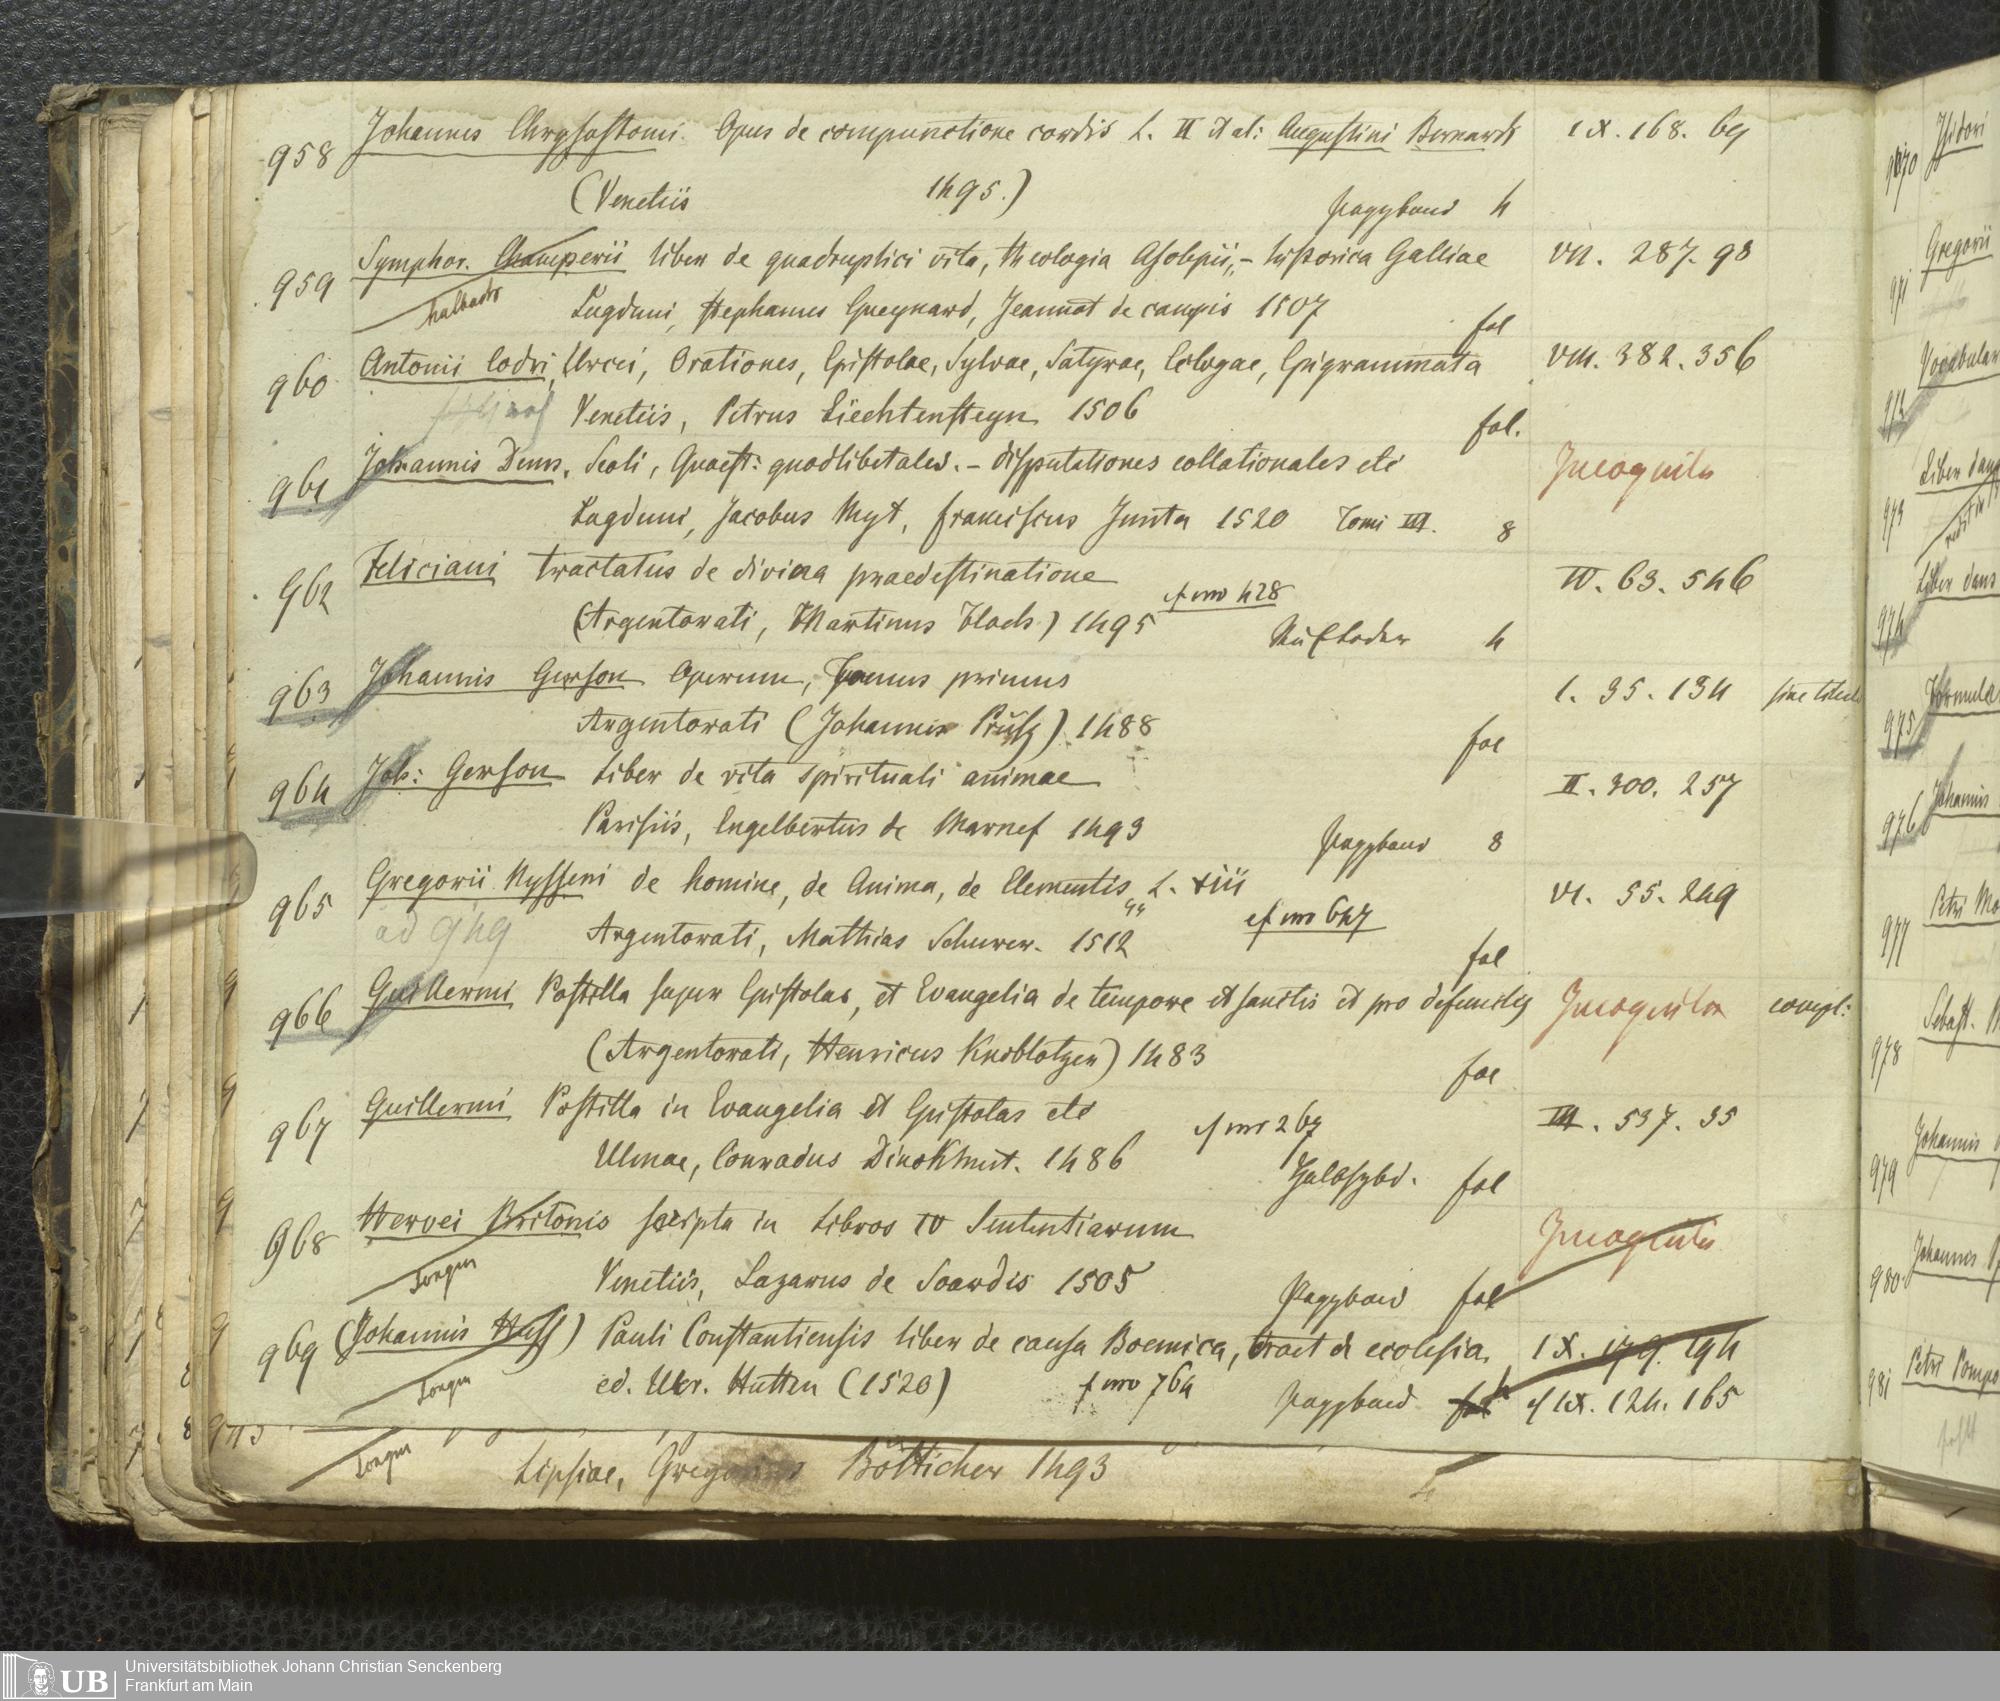 958 Johannis Chrysostomi. Opus de compunctione cordis L. II et al: Augustini Bernardi IX. 168. 69
(Venetiis 1495.) Pappband 4
959 Symphor. Champerii liber de quadruplici vita, theologia Asclepii, – historica Galliae VII. 287. 98
Lugduni, Stephanus Gueynard, Jeannot de campis 1507 fol
960 Antonii Codri, Urcei, Orationes, Epistolae, Sylvae, Satyrae, Eclogae, Epigrammata VIII. 382. 356
Venetiis, Petrus Liechtensteyn 1506 fol.
961 Johannis Duns, Scoti, Quaest: quodlibetales. – disputationes collationales etc Incognita
Lugduni, Jacobus Myt, Franciscus Junta 1520 Tomi III. 8
962 Feliciani tractatus de divina praedestinatione IV. 63. 546
(Argentorati, Martinus Flach) 1495 cf nro 428 4
963 Johannis Gerson Operum, Tomus primus I. 35. 134 sine titulo
Argentorati (Johannis Prüss) 1488 fol
964 Joh: Gerson Liber de vita spirituali animae II. 300. 257
Parisiis, Engelbertus de Marnef 1493 Pappband 8
965 Gregorii Nysseni de homine, de Anima, de Elementis L. VIII VI. 55. 249
ad 949 Argentorati, Mathias Schurer. 1512 cf nro 647 fol
966 Guillermi Postilla super Epistolas, et Evangelia de tempore et sanctis et pro defunctis Incognita compl:
(Argentorati, Henricus Knoblotzer) 1483 fol
967 Guillermi Postilla in Evangelia et Epistolas etc III. 537. 35
Ulmae, Conradus Dinckmut. 1486 cf nro 267 fol
968 Hervei Britonis scripta in Libros IV Sententiarum Incognita
Venetiis, Lazarus de Soardis 1505 Pappband fol
969 (Johannis Huss) Pauli Constantiensis liber de causa Boemica, tract de ecclesia. IX. 179. 194
ed. Ulr. Hutten (1520) f nro 764 Pappband fol 4 cf IX. 124. 165
Lipsiae, Gregorius Bötticher 1493
970 Isidori
971 Gregorii
972 Vocabular
973
974 Liber dans
975 Formular
976 Johannis
977 Petri
978 Sebast.
979 Johannis
980 Johannis
981 Petri Pompo
fehlt
UB
Universitätsbibliothek Johann Christian Senckenberg
Frankfurt am Main